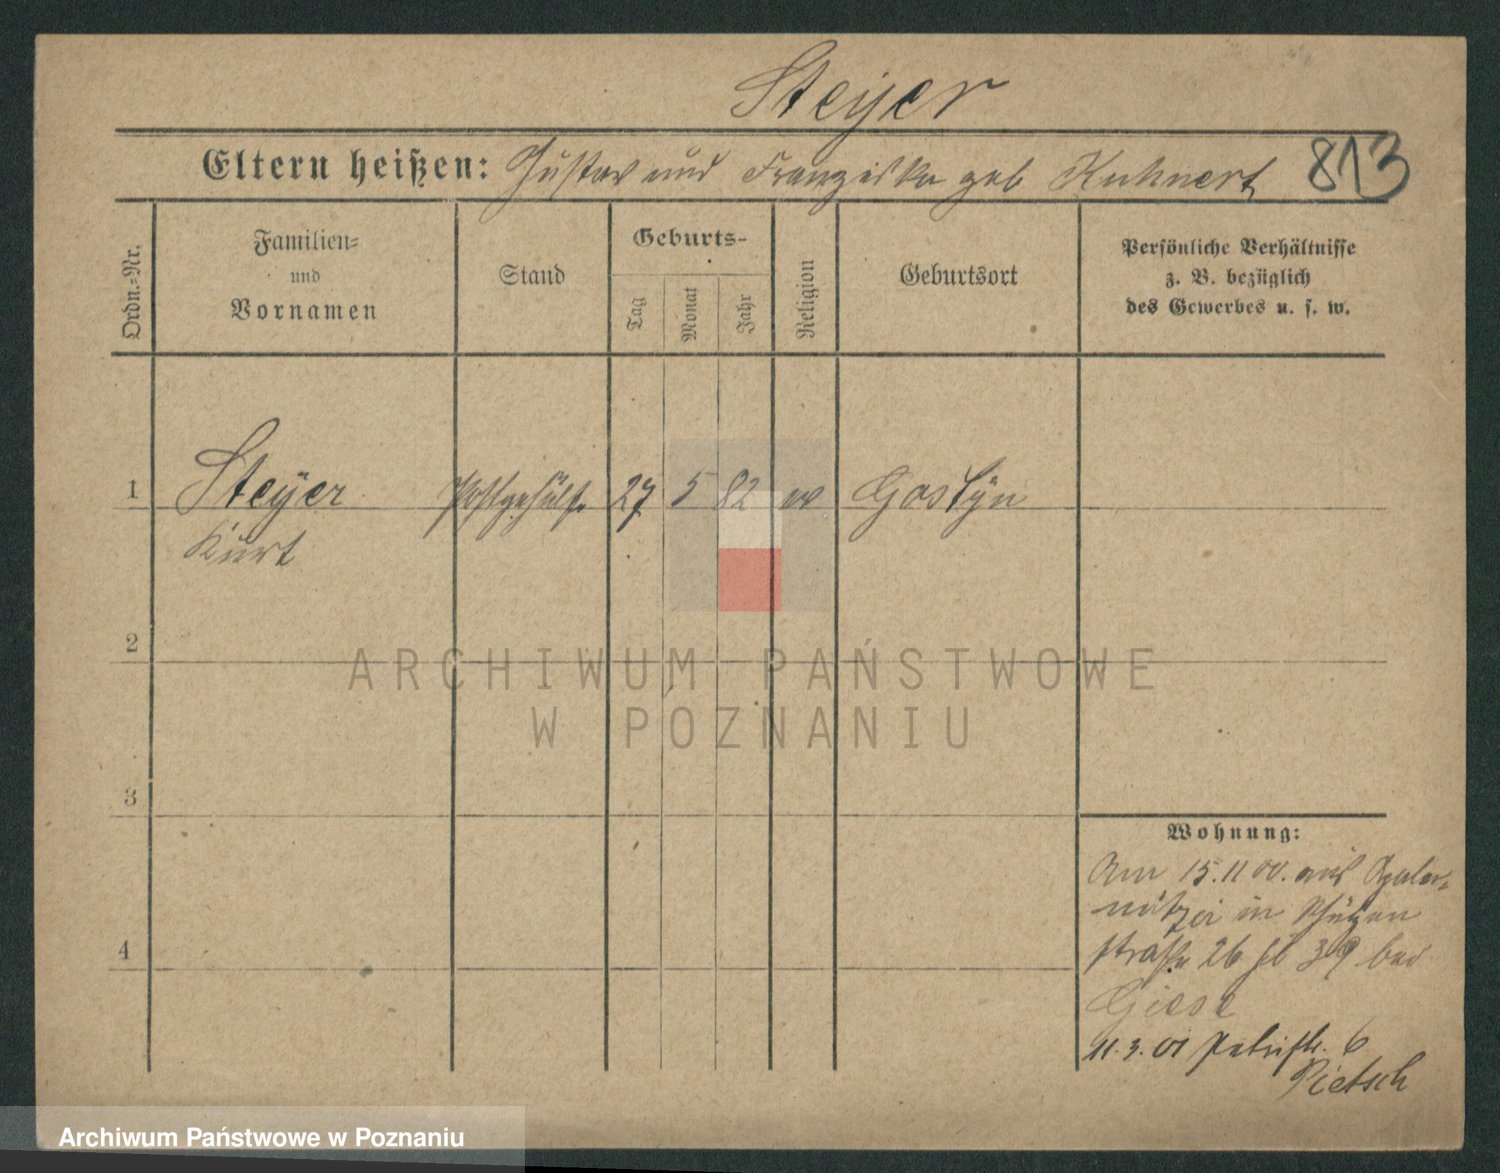 Steyer
Eltern heißen: Gustav und Franziska geb Kuhnert 813
Ordn.=Nr.
Familien=
und
Vornamen
Stand
Geburts-
Tag
Monat
Jahr
Religion
Geburtsort
Persönliche Verhältnisse
z. B. bezüglich
des Gewerbes u. s. w.
1 Steyer Postgehülfe 27 5 82 ev Gostyn
Kurt
2
3
4
ARCHIWUM PAŃSTWOWE
W POZNANIU
Wohnung:
Am 15.11 00. aus
in Schützen
straße 26 39 bei
Giese
11.3.01 Petristr. 6
Pietsch
Archiwum Państwowe w Poznaniu